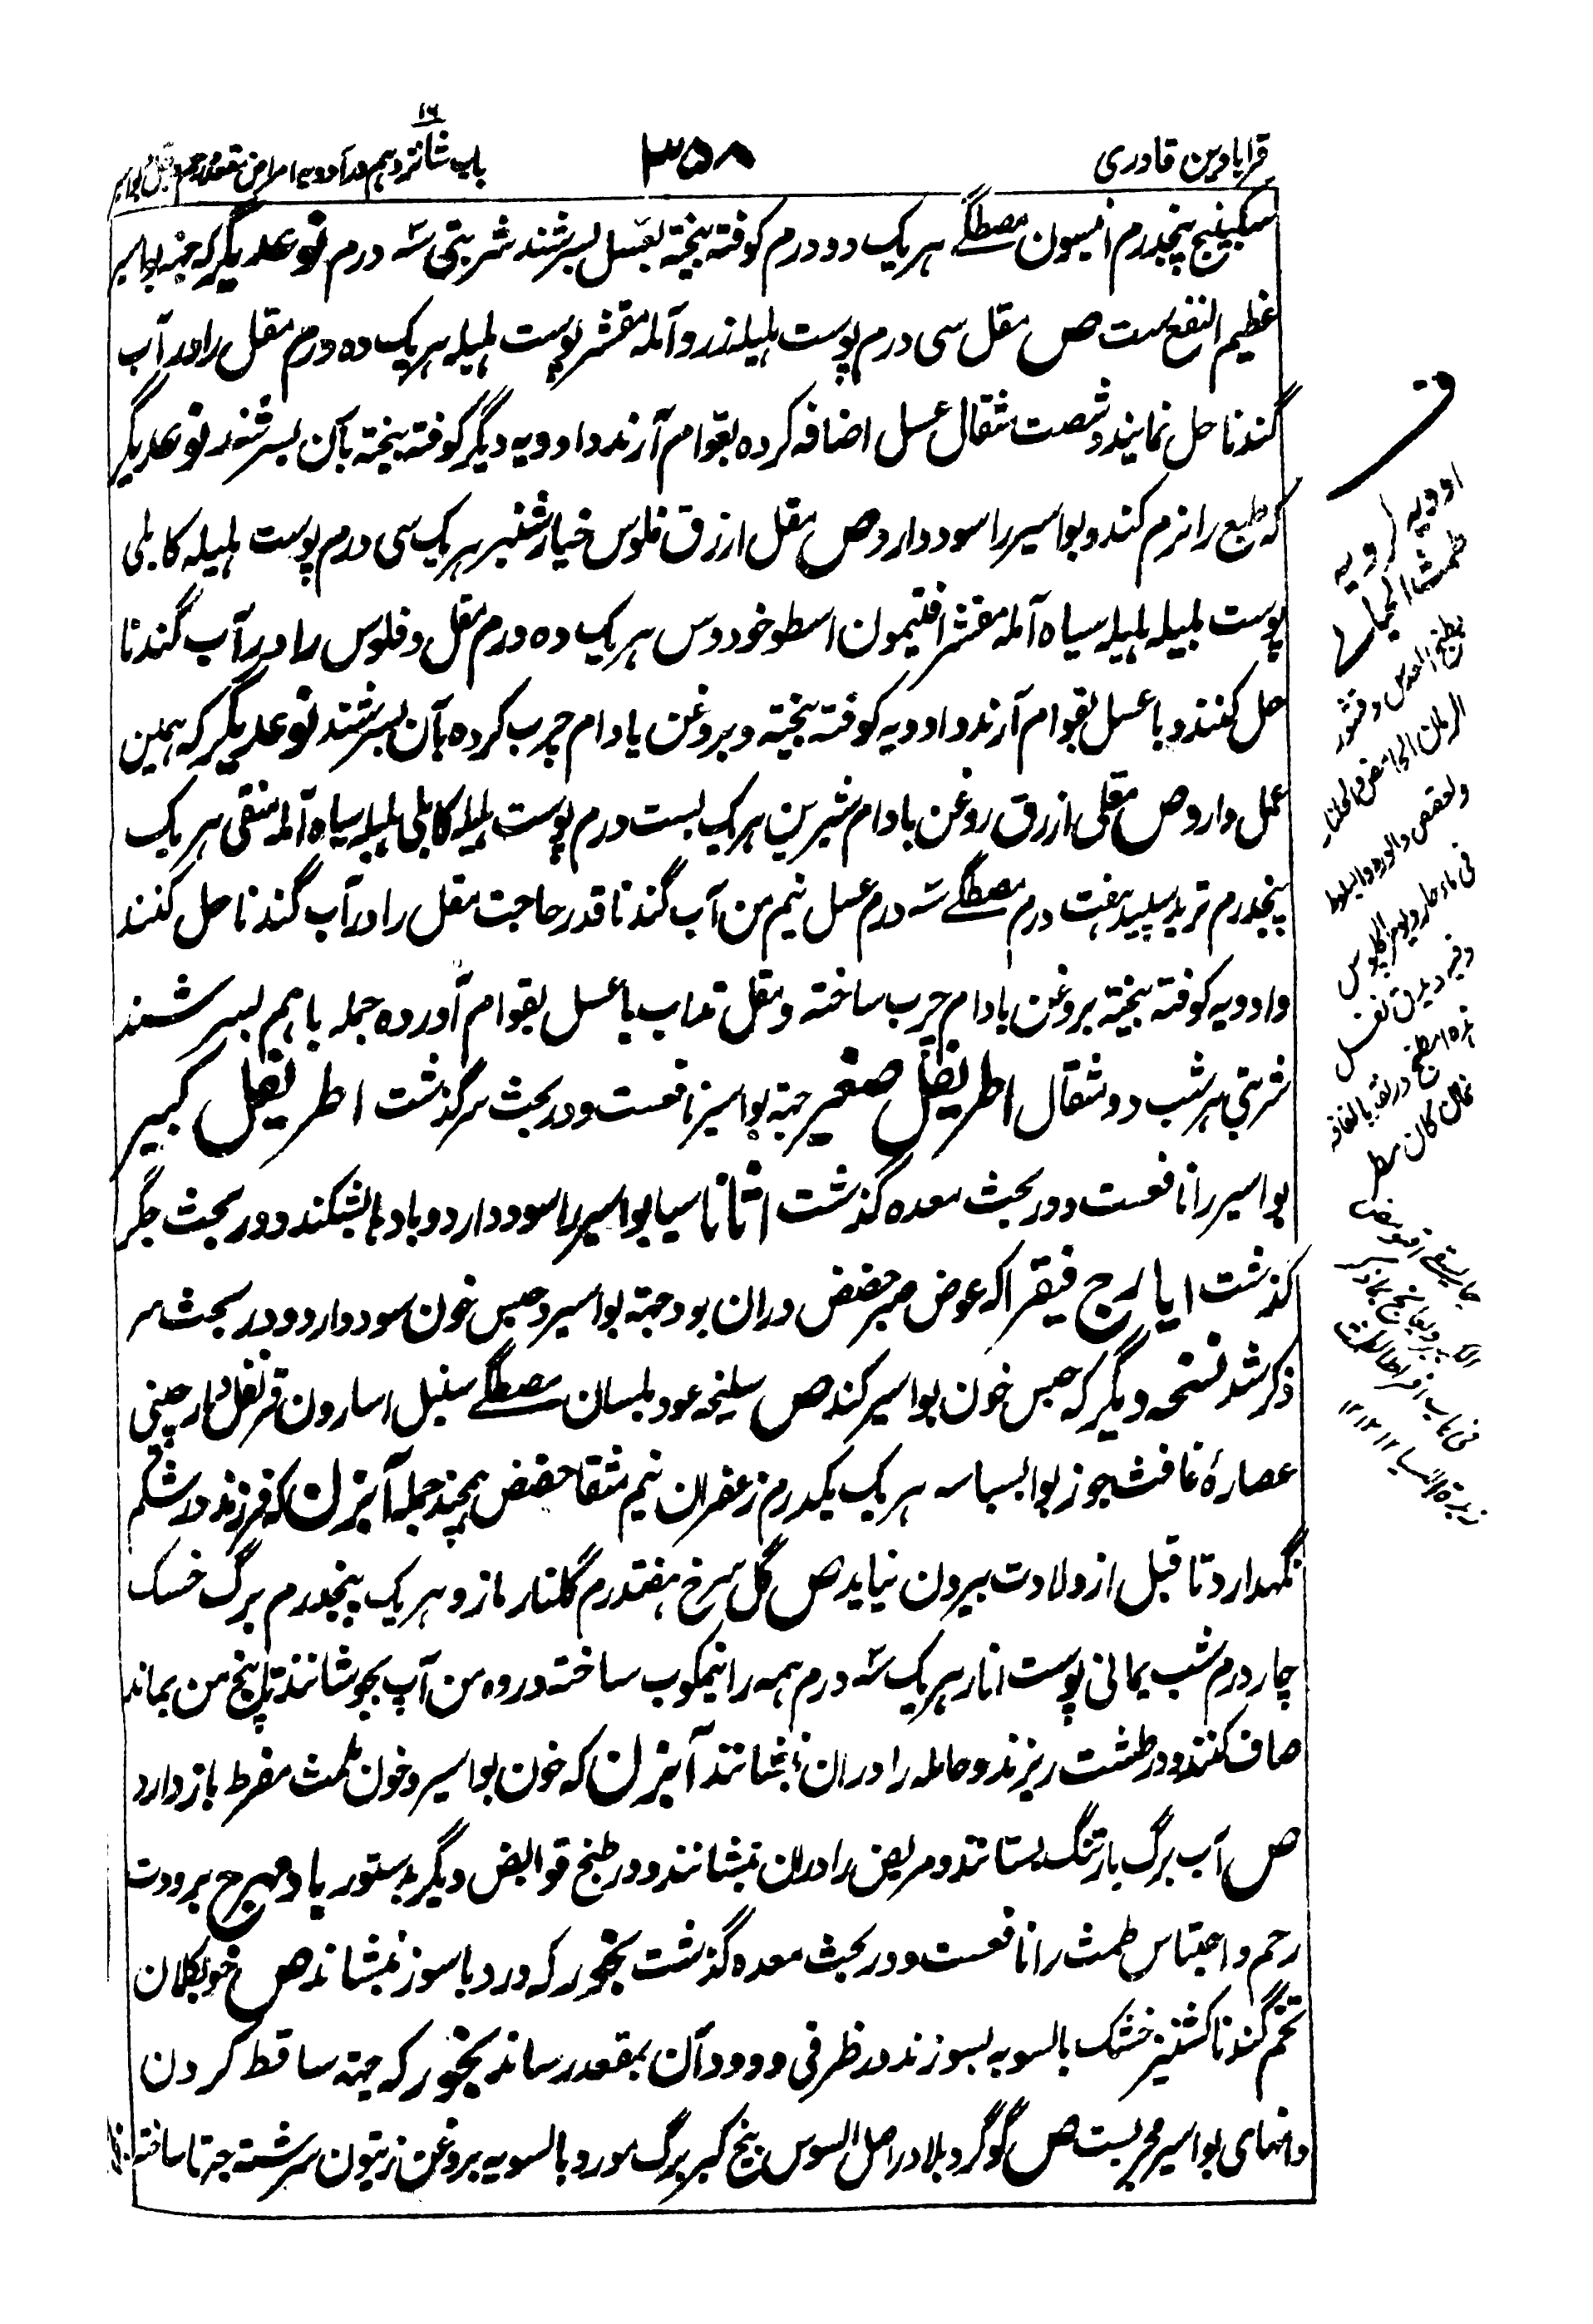 قرابادین قادری
۳۵۸
باب شانزدهم در ادویه امراض مقعد و رحم
۱۶
سکبینج پنجدرم انیسون مصطگے هر یک دو درم کوفته بیخته بعسل بسرشند شربتی سه درم نوعدیگر که جهة بواسیر
عظیم النفع ست ص مقل سی درم پوست هلیله زرد و آمله مقشر پوست بلیله هر یک ده درم مقل را در آب
گندنا حل نمایند و شصت مثقال عسل اضافه کرده بقوام آرند و ادویه دیگر کوفته بیخته بآن بسرشند نوعدیگر
که طبع را نرم کند و بواسیر را سود دارد ص مقل ازرق فلوس خیارشنبر هر یک سی درم پوست هلیله کابلی
پوست بلیله هلیله سیاه آمله مقشر افتیمون اسطوخودوس هر یک ده درم مقل و فلوس را در آب گندنا
حل کنند و با عسل بقوام آرند و ادویه کوفته بیخته و بروغن بادام چرب کرده بآن بسرشند نوعدیگر که همین
عمل دارد ص مقل ازرق روغن بادام شیرین هر یک بست درم پوست هلیله کابلی هلیله سیاه آمله منقی هر یک
پنجدرم تربد سپید هفت درم مصطگے سه درم عسل نیم من آب گندنا قدر حاجت مقل را در آب گندنا حل کنند
و ادویه کوفته بیخته بروغن بادام چرب ساخته و مقل مذاب با عسل بقوام آورده جمله باهم بسرشند
شربتی هر شب دو مثقال اطریفل صغیر جهة بواسیر نافعست و در بحث سر گذشت اطریفل کبیر
بواسیر را نافعست و در بحث معده گذشت اثاناسیا بواسیر را سود دارد و بادها بشکند و در بحث جگر
گذشت ایارج فیقرا که عوض صبر حضض دران بود جهة بواسیر و حبس خون سود دارد و در بحث سر
ذکر شد نسخه دیگر که حبس خون بواسیر کند ص سلیخه عود بلسان مصطگے سنبل اسارون قرنفل دارچینی
عصارهٔ غافث جوز بوا بسباسه هر یک یکدرم زعفران نیم مثقال حضض همچند جمله آبزن که فرزند در شکم
نگهدارد تا قبل از ولادت بیرون نیاید ص گل سرخ هفتدرم گلنار مازو هر یک پنجدرم برگ خسک
چار درم شب یمانی پوست انار هر یک سه درم همه را نیمکوب ساخته در ده من آب بجوشانند تا پنج من بماند
صاف کنند و در طشت ریزند و حامله را دران بنشانند آبزن که خون بواسیر و خون طمث مفرط باز دارد
ص آب برگ بارتنگ بستانند و مریض را دران بنشانند و در طبخ قوابض دیگر بدستور بادمهرج برودت
رحم و احتباس طمث را نافعست و در بحث معده گذشت بخور که درد باسور بنشاند ص خوبکلان
تخم گندنا کشنیز خشک بالسویه بسوزند در ظرفی و دود آن بمقعد رسانند بخور که جهة ساقط کردن
دانهای بواسیر مجربست ص گوگرد بلادر اصل السوس بیخ کبر برگ مورد بالسویه بروغن زیتون سرشته حبها ساخته
ادویه
بطبخ العدس و قشور
الرمان الحامض والجلنار
والعفص والورد والبلوط